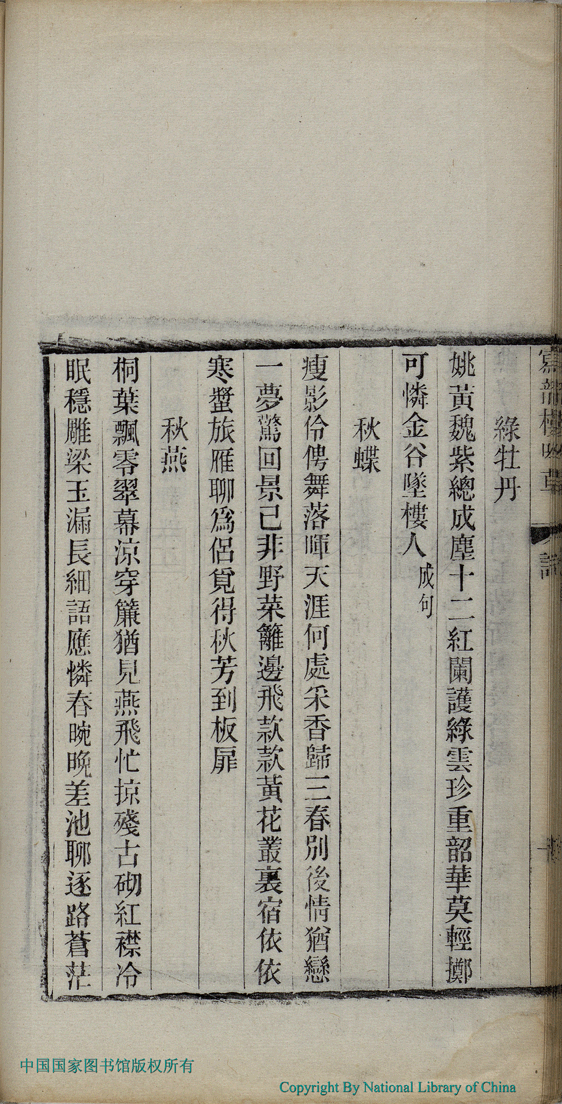 寫韻樓吟草
詩
綠牡丹
姚黃魏紫總成塵十二紅闌護綠雲珍重韶華莫輕擲
可憐金谷墜樓人成句
秋蝶
瘦影伶俜舞落暉天涯何處采香歸三春別後情猶戀
一夢驚回景已非野菜籬邊飛款款黃花叢裏宿依依
寒螿旅雁聊爲侶覓得秋芳到板扉
秋燕
桐葉飄零翠幕涼穿簾猶見燕飛忙掠殘古砌紅襟冷
眠穩雕梁玉漏長細語應憐春晼晚差池聊逐路蒼茫
中国国家图书馆版权所有
Copyright By National Library of China